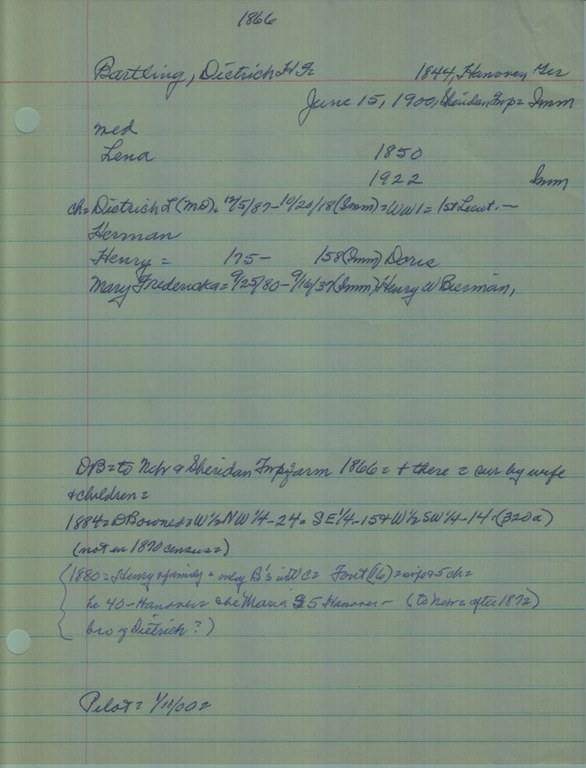 1866
Bartling, Dietrich H Fr 1844, Hanover Ger
June 15, 1900, Sheridan Twp = Imm
med
Lena 1850
1922 Imm
ch = Dietrich L (MD) = 12/5/87 - 10/20/18 (Imm) = WW1 = 1st Lieut. -
Herman
Henry = 175 - 158 (Imm) Doris
Mary Fredericka = 9/25/80 - 9/16/37 (Imm) Henry W Bierman,
DB = to Neb & Sheridan Twp farm 1866 = + there = sur by wife
+ children =
1884 = D B owned = W 1/2 NW 1/4 - 24 = SE 1/4 - 15 + W 1/2 SW 1/4 - 14 - (320 a)
(not in 1870 census =)
(1880 = Henry & family = only B's in C = Font (16) = wife + 5 ch =
he 40 - Hanover = she Maria 35 Hanover - (to Neb = after 1872)
bro of Dietrich?)
Pilot = 1/11/00 =